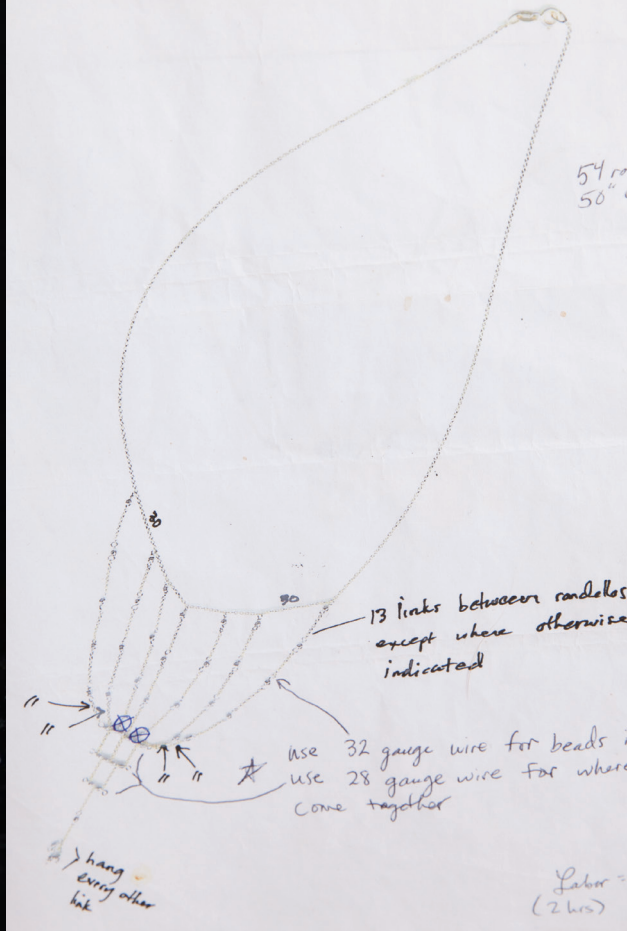 54
50"
30
30
13 links between rondelles
except where otherwise
indicated
11
11
11
11
use 32 gauge wire for beads
use 28 gauge wire for where
come together
> hang
every other
link
Labor =
(2 hrs)